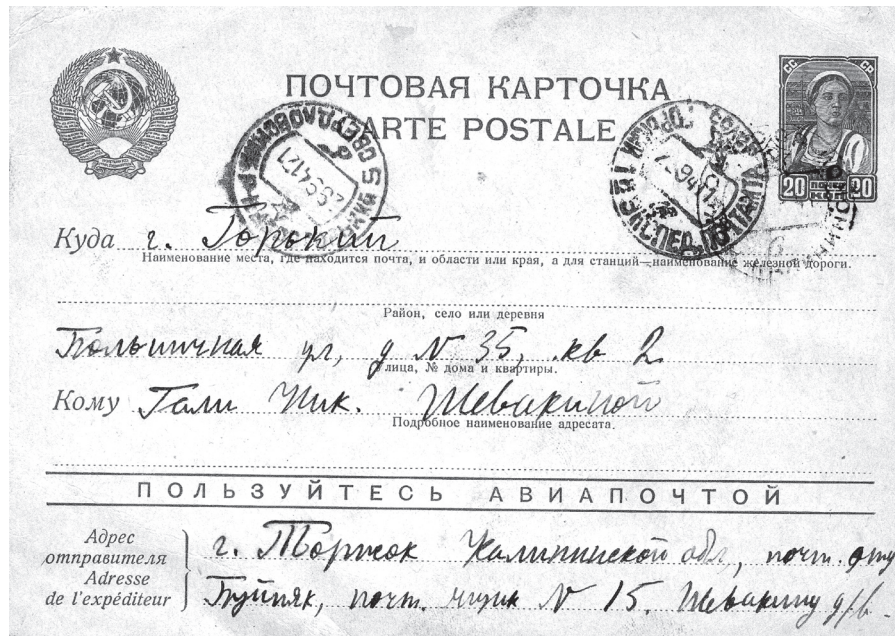 ПОЧТОВАЯ КАРТОЧКА
CARTE POSTALE
СС СР
20 ПОЧТА КОП 20
Куда г. Горький
Наименование места, где находится почта, и области или края, а для станций—наименование железной дороги.
Район, село или деревня
ул, д N 35, кв 2
Улица, № дома и квартиры.
Кому Гали Ник. Шевакиной
Подробное наименование адресата.
ПОЛЬЗУЙТЕСЬ АВИАПОЧТОЙ
Адрес отправителя
Adresse de l'expéditeur
г. Торжок Калининской обл, почт. отд
почт. ящик N 15. Шевакину